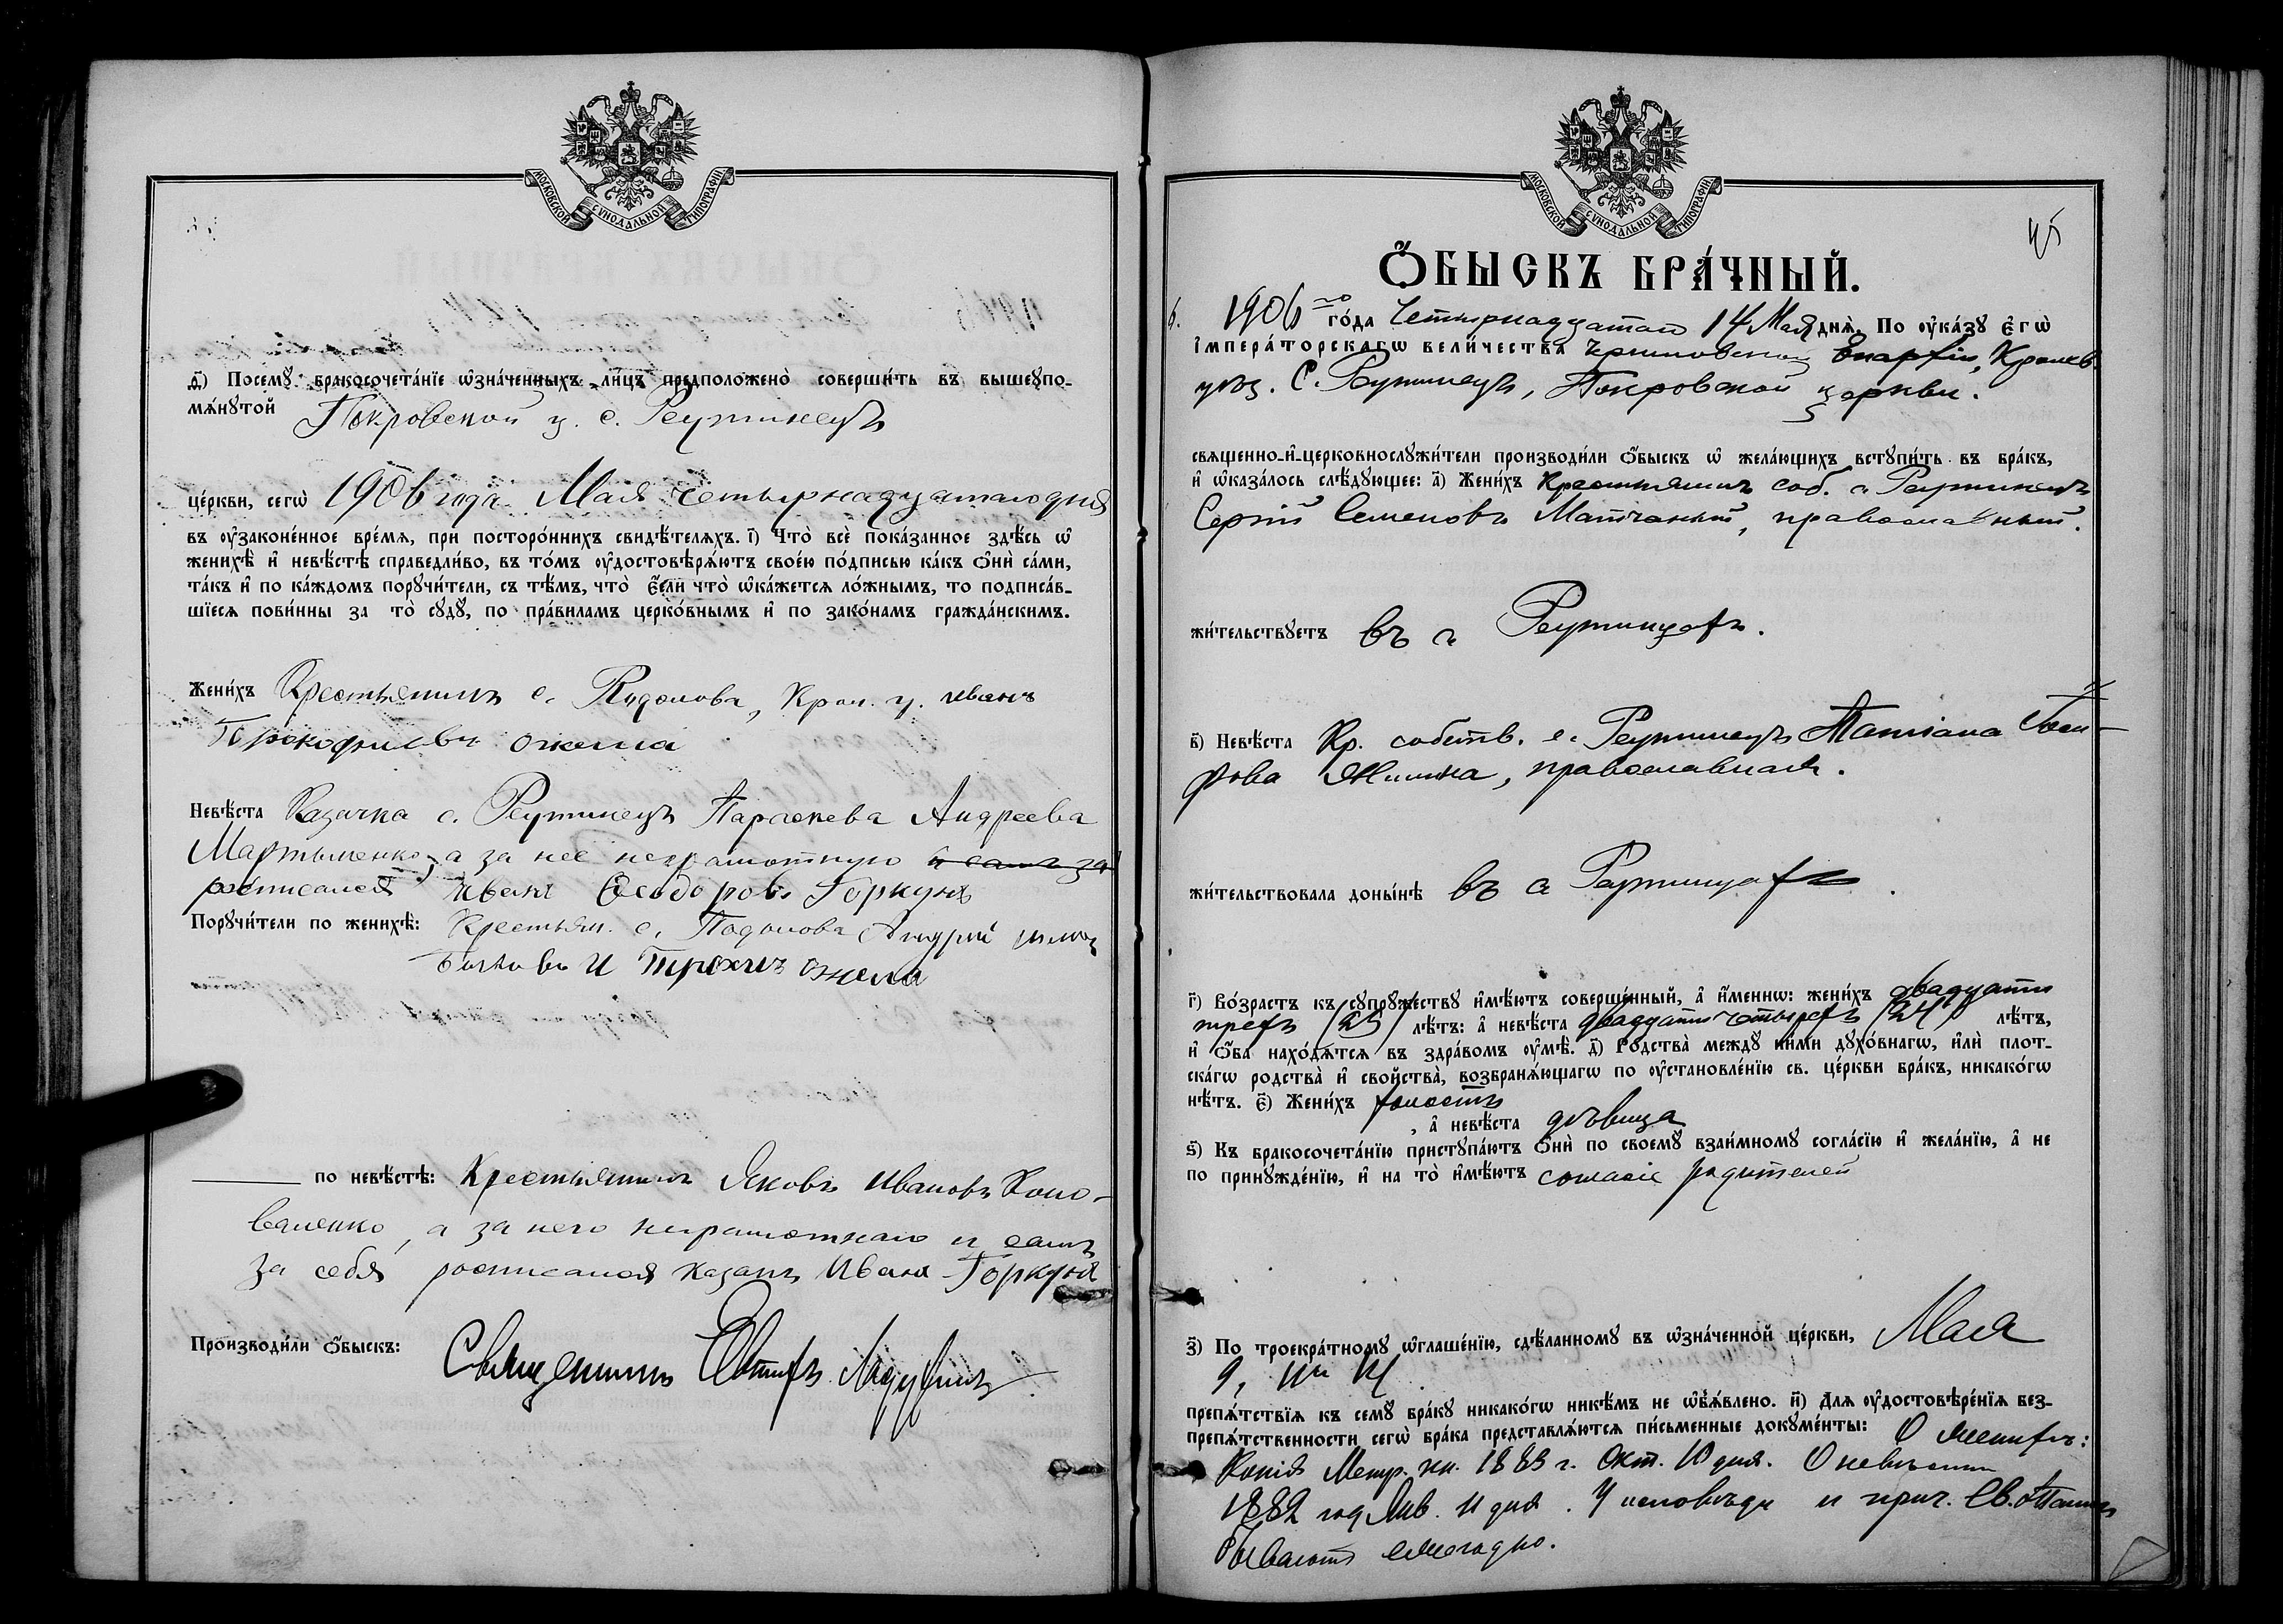 МОСКОВСКОЙ СѴНОДАЛЬНОЙ ТИПОГРАФІИ
д҃) Посемꙋ̀ бракосочета́нїе ѡ҆зна́ченныхъ ли́цъ предположено̀ соверши́ть въ вышеꙋпо-
мѧ́нꙋтой Покровской ц. с. Реутинецъ
це́ркви, сегѡ̀ 1906 года Мая четырнадцатаго дня
въ ᲂу҆законе́нное вре́мѧ, при посторо́ннихъ свидѣ́телѧхъ. і҃) Что̀ всѐ пока́занное здѣ́сь ѡ҆
женихѣ̀ и҆ невѣ́стѣ справедли́во, въ то́мъ ᲂу҆достовѣрѧ́ютъ свое́ю по́дписью ка́къ ѻ҆нѝ са́ми,
та́къ и҆ по ка́ждомъ порꙋчи́тели, съ тѣ́мъ, что̀ є҆́сли что̀ ѡ҆ка́жетсѧ ло́жнымъ, то подписа́в-
шїесѧ пови́нны за то̀ сꙋдꙋ̀, по пра́виламъ церко́внымъ и҆ по зако́намъ гражда́нскимъ.
Жени́хъ Крестьянинъ с. Подолова, Крол. у. Иванъ
Прокофиевъ
Невѣ́ста Казачка с. Реутинецъ Параскева Андреева
Мартыненко, а за нее неграмотную и самъ за
росписался Иванъ Ѳеодоровъ Горкунъ
Порꙋчи́тели по женихѣ̀: Крестьян. с. Подолова Андрій
и
по невѣ́стѣ: Крестьянинъ Яковъ Ивановъ Коно-
валенко, а за него неграмотнаго и самъ
за себя росписался казакъ Иванъ Горкунъ
Производи́ли ѻ҆́быскъ: Священникъ Евтихъ
МОСКОВСКОЙ СѴНОДАЛЬНОЙ ТИПОГРАФІИ
45
Ѻ҆́БЫСКЪ БРА́ЧНЫЙ.
6. 1906 го го́да Четырнадцатаго 14 Мая днѧ̀. По ᲂу҆ка́зꙋ є҆гѡ̀
і҆мпера́торскагѡ вели́чества Черниговской Епархіи, Кролев.
уѣз. С. Реутинецъ, Покровской церкви.
свѧщенно-и҆-церковнослꙋжи́тели производи́ли ѻ҆́быскъ ѡ҆ жела́ющихъ встꙋпи́ть въ бра́къ,
и҆ ѡ҆каза́лось слѣ́дꙋющее: а҃) Жени́хъ Крестьянинъ соб. с. Реутинецъ
Сергій Семеновъ Матчаный, православный.
жи́тельствꙋетъ въ с. Реутинцахъ.
в҃) Невѣ́ста Кр. собств. с. Реутинецъ Татіана
православная.
жи́тельствовала доны́нѣ въ с Реутинцахъ.
г҃) Во́зрастъ къ сꙋпрꙋ́жествꙋ и҆мѣ́ютъ соверше́нный, а҆ и҆́меннѡ: жени́хъ двадцати
трехъ /23/ лѣ́тъ: а҆ невѣ́ста двадцати четырехъ /24/ лѣ́тъ,
и҆ ѻ҆́ба нахо́дѧтсѧ въ здра́вомъ ᲂу҆мѣ̀. д҃) Родства̀ междꙋ ни́ми дꙋхо́внагѡ, и҆лѝ плот-
ска́гѡ родства̀ и҆ свойства̀, возбранѧ́ющагѡ по ᲂу҆становле́нїю св. це́ркви бра́къ, никако́гѡ
нѣ́тъ. є҃) Жени́хъ холостъ
, а҆ невѣ́ста дѣвица
ѕ҃) Къ бракосочета́нїю пристꙋпа́ютъ ѻ҆нѝ по своемꙋ̀ взаи́мномꙋ согла́сїю и҆ жела́нїю, а҆ не
по принꙋжде́нїю, и҆ на то̀ и҆мѣ́ютъ согласіе родителей
з҃) По троекра́тномꙋ ѡ҆глаше́нїю, сдѣ́ланномꙋ въ ѡ҆зна́ченной це́ркви, Мая
9, и 14
препѧ́тствїѧ къ семꙋ̀ бра́кꙋ никако́гѡ никѣ́мъ не ѡ҆б̾ѧ́влено. и҃) Длѧ ᲂу҆достовѣре́нїѧ без-
препѧ́тственности сегѡ̀ бра́ка представлѧ́ютсѧ пи́сьменные докꙋме́нты: О женихѣ:
Копія Метр. кн. 1883 г. Окт. 10 дня. О невѣстѣ
1882 год Янв. 11 дня. У исповѣди и прич. Св. Таинъ
бываютъ ежегодно.